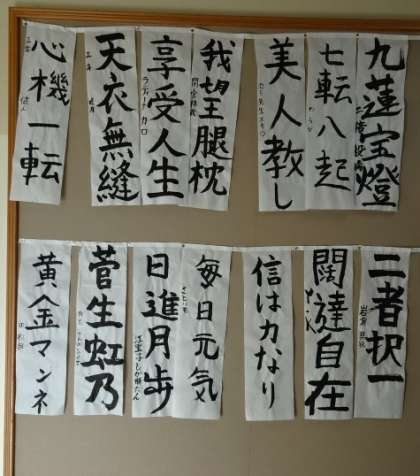 九蓮宝燈
七転八起
美人教し
我望腿枕
享受人生
天衣無縫
心機一転
二者択一
闊達自在
信は力なり
毎日元気
日進月歩
菅生虹乃
黄金マンネ